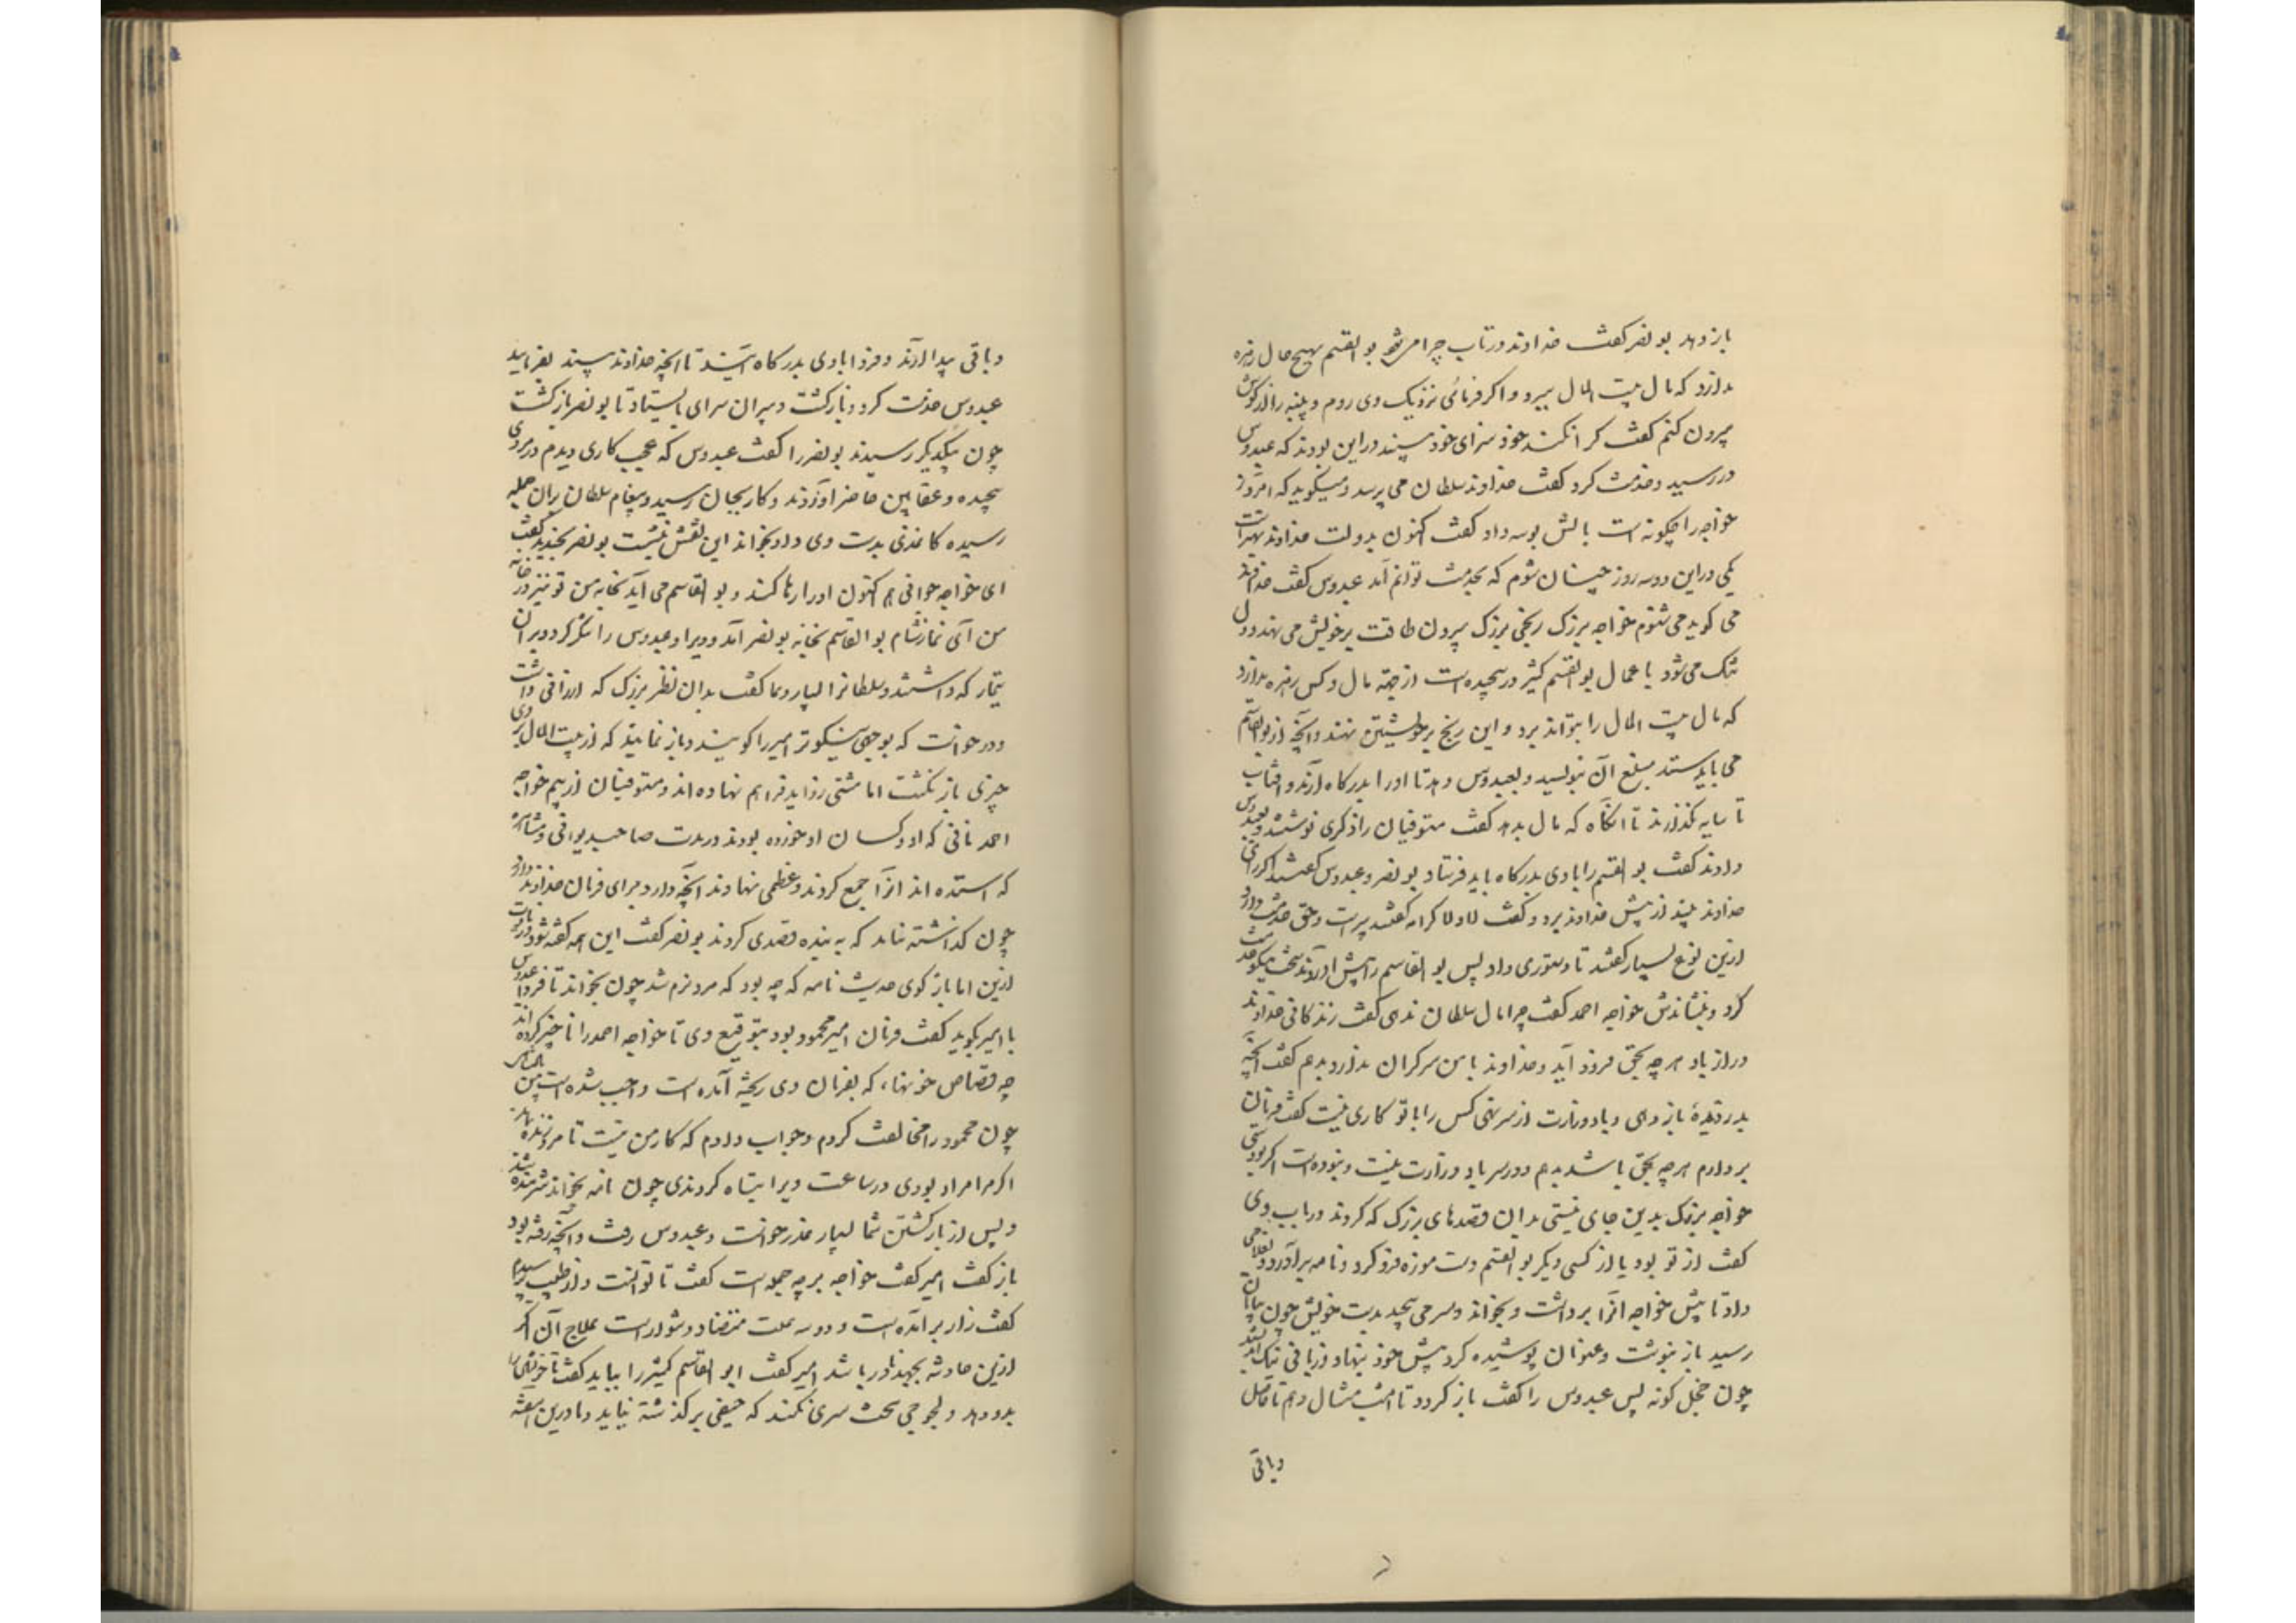 باز دهد بو نصر گفت خداوند در تاب چرا می‌شود بو القسم بهیچ حال زهره
ندارد که مال بیت المال ببرد و اگر فرمائی نزدیک وی روم و پنبه را از گوش
بیرون کنم گفت کرا نکند خود سزای خود بیند در این بودند که عبدوس
در رسید و خدمت کرد گفت خداوند سلطان می پرسد و میگوید که امروز
خواجه را چگونه است بالش بوسه داد گفت اکنون بدولت خداوند بهتر است
یکی در این دو سه روز چنان شوم که بخدمت توانم آمد عبدوس گفت خداوند
می گوید می شنوم خواجه بزرگ رنجی بزرگ بیرون طاقت بر خویش می نهد و دل
تنگ می شود با عمال بو القسم کثیر در پیچیده است از جهة مال و کس زهره ندارد
که مال بیت المال را بتواند برد و این رنج بر خویشتن ننهد و آنچه از بو القاسم
می باید ستد مبلغ آن بنویسد و بعبدوس دهد تا او را بدرگاه آرند و آفتاب
تا سایه نگذارند تا آنگاه که مال بدهد گفت مستوفیان را ذکری نوشتند و بعبدوس
دادند گفت بو القسم را با وی بدرگاه باید فرستاد بو نصر و عبدوس گفتند اگر رای
خداوند بیند از پیش خداوند برود گفت لا ولا کرامه گفتند پیر است و حق خدمت دارد
ازین نوع بسیار گفتند تا دستوری داد پس بو القاسم را پیش او آوردند سخت نیکو خدمت
کرد و بنشاندش خواجه احمد گفت چرا مال سلطان ندهی گفت زندگانی خداوند
دراز باد هر چه بحق فرود آید و خداوند با من سر گران ندارد بدهم گفت آنچه
بدزدیدهٔ باز دهی و باد وزارت از سر بنهی کس را با تو کاری نیست گفت فرمان
بردارم هر چه بحق باشد بدهم و در سر باد وزارت نیست و نبوده است اگر بودی
خواجه بزرگ بدین جای نیستی بدان قصدهای بزرگ که کردند در باب وی
گفت از تو بود یا از کسی دیگر بو القسم دست موزه فرو کرد و نامه برآورد و بغلامی
داد تا پیش خواجه آنرا برداشت و بخواند و سر می پیچید بدست خویش چون بپایان
رسید باز نبوشت و عنوان پوشیده کرد پیش خود بنهاد و زمانی نیک اندیشید
چون خجل گونه پس عبدوس را گفت باز گرد تا امشب مثال دهم تا حاصل
و باقی
و باقی پیدا آرند و فردا با وی بدرگاه آیند تا آنچه خداوند بیند بفرماید
عبدوس خدمت کرد و بازگشت و بیرون سرای بایستاد تا بو نصر بازگشت
چون بیکدیگر رسیدند بو نصر را گفت عبدوس که عجب کاری دیدم در مردی
پیچیده و عقابین حاضر آوردند و کار بجان رسید و پیغام سلطان بران جمله
رسیده کاغذی بدست وی داد بخواند این نقش بنشست بو نصر بخندید گفت
ای خواجه جوانی هم اکنون او را رها کند و بو القاسم می آید بخانه من تو نیز در خانه
من آی نماز شام بو القاسم بخانه بو نصر آمد و ویرا و عبدوس را شکر کرد و بران
تیمار که داشتند و سلطان را بسیار دعا گفت بدان نظر بزرگ که ارزانی داشت
و درخواست که بوجهی نیکوتر امیر را گویند و باز نمایند که از بیت المال بر وی
چیزی باز نگشت اما مشتی زواید فراهم نهاده اند و مستوفیان از بیم خواجه
احمد نانی که او و کسان او خورده بودند در مدت صاحبدیوانی و مشاهره
که استده اند آنرا جمع کردند و عظمی نهادند آنچه دارد برای فرمان خداوند دارد
چون گذاشته نیاید که به بنده قصدی کردند بو نصر گفت این همه گفته شود و زیادت
ازین اما باز گوی حدیث نامه که چه بود که مرد نرم شد چون بخواند تا فردا عبدوس
با امیر بگوید گفت فرمان امیر محمود بود بتوقیع وی تا خواجه احمد را ناچیز کرده آید
چه قصاص خونها، که بفرمان وی ریخته آمده است واجب شده است من
چون محمود را مخالفت کردم و جواب دادم که کار من نیست تا مرد زنده بماند
اگر مرا مراد بودی در ساعت ویرا تباه کردندی چون نامه بخواند شرمنده شد
و پس از بازگشتن شما بسیار عذر خواست و عبدوس رفت و آنچه رفته بود
باز گفت امیر گفت خواجه بر چه جمله است گفت ناتوانست و از طبیب پرسیدم
گفت زار برآمده است و دو سه علت متضاد دشوار است علاج آن اگر
ازین حادثه بجهد نادر باشد امیر گفت ابو القاسم کثیر را بباید گفت تا خویشتن را
بدو دهد و لجوجی و سخت سری نکند که حیفی بر گذشته نیاید و ما درین هفته